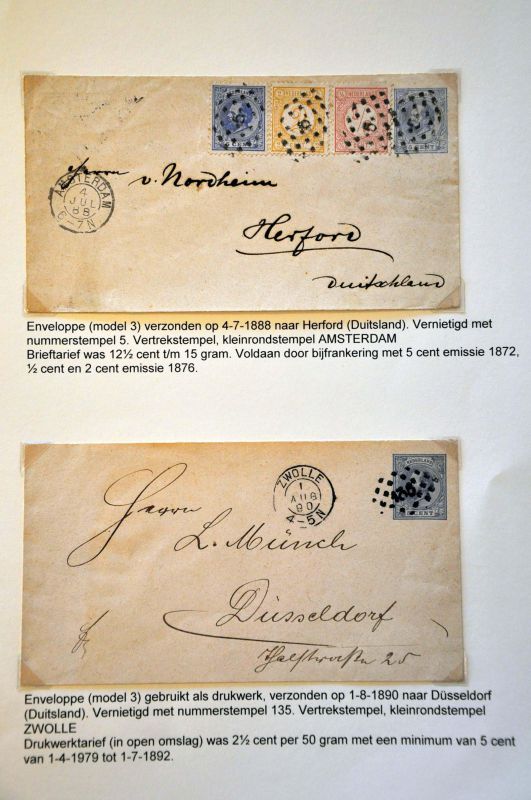 NEDERLAND
NEDERLAND
5 CENT
5 CENT
AMSTERDAM
4
JUL
88
6-7N
Herrn v. Nordheim
Herford
Duitschland
Enveloppe (model 3) verzonden op 4-7-1888 naar Herford (Duitsland). Vernietigd met
nummerstempel 5. Vertrekstempel, kleinrondstempel AMSTERDAM
Brieftarief was 12½ cent t/m 15 gram. Voldaan door bijfrankering met 5 cent emissie 1872,
½ cent en 2 cent emissie 1876.
ZWOLLE
1
AUG
90
4-5N
NEDERLAND
5 CENT
135
Herrn
L. Münch
Düsseldorf
25
Enveloppe (model 3) gebruikt als drukwerk, verzonden op 1-8-1890 naar Düsseldorf
(Duitsland). Vernietigd met nummerstempel 135. Vertrekstempel, kleinrondstempel
ZWOLLE
Drukwerktarief (in open omslag) was 2½ cent per 50 gram met een minimum van 5 cent
van 1-4-1979 tot 1-7-1892.